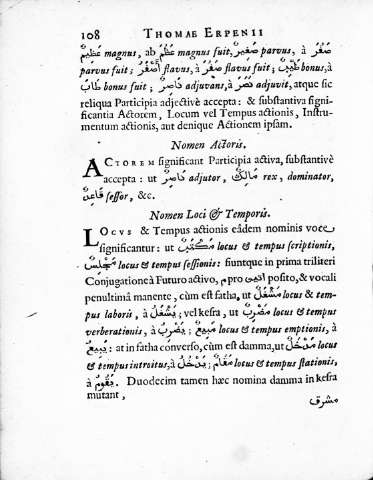 108 THOMAE ERPENII
عَظِيمٌ magnus, ab عَظُمَ magnus fuit, صَغِيرٌ parvus, à صَغُرَ
parvus fuit; أَصْفَرُ flavus, à صَفُرَ flavus fuit; طَيِّبٌ bonus, à
طَابَ bonus fuit; نَاصِرٌ adjuvans, à نَصَرَ adjuvit, atque sic
reliqua Participia adjectivè accepta: & substantiva signi-
ficantia Actorem, Locum vel Tempus actionis, Instru-
mentum actionis, aut denique Actionem ipsam.
Nomen Actoris.
ACTOREM significant Participia activa, substantivè
accepta: ut نَاصِرٌ adjutor, مَالِكٌ rex, dominator,
قَاعِدٌ sessor, &c.
Nomen Loci & Temporis.
LOCUS & Tempus actionis eâdem nominis voce
significantur: ut مَكْتَبٌ locus & tempus scriptionis,
مَجْلِسٌ locus & tempus sessionis: fiuntque in prima triliteri
Conjugatione à Futuro activo, م pro posito, & vocali
penultimâ manente, cùm est fatha, ut مَشْغَلٌ locus & tem-
pus laboris, à يَشْغَلُ; vel kesra, ut مَضْرِبٌ locus & tempus
verberationis, à يَضْرِبُ; مَبِيعٌ locus & tempus emptionis, à
يَبِيعُ: at in fatha converso, cùm est damma, ut مَدْخَلٌ locus
& tempus introitus, à يَدْخُلُ; مَقَامٌ locus & tempus stationis,
à يَقُومُ. Duodecim tamen hæc nomina damma in kesra
mutant,
مشرق